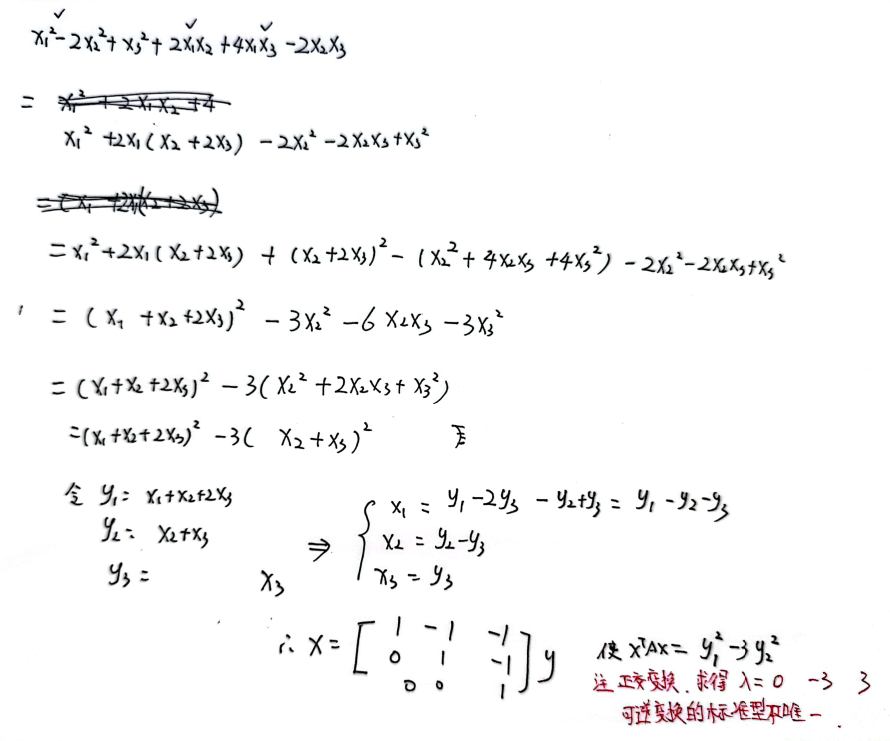 x₁² - 2x₂² + x₃² + 2x₁x₂ + 4x₁x₃ - 2x₂x₃
= x₁² + 2x₁x₂ + 4
x₁² + 2x₁(x₂ + 2x₃) - 2x₂² - 2x₂x₃ + x₃²
= x₁² + 2x₁(x₂ + 2x₃) + (x₂ + 2x₃)² - (x₂² + 4x₂x₃ + 4x₃²) - 2x₂² - 2x₂x₃ + x₃²
= (x₁ + x₂ + 2x₃)² - 3x₂² - 6x₂x₃ - 3x₃²
= (x₁ + x₂ + 2x₃)² - 3(x₂² + 2x₂x₃ + x₃²)
= (x₁ + x₂ + 2x₃)² - 3(x₂ + x₃)²
令 y₁ = x₁ + x₂ + 2x₃
y₂ = x₂ + x₃
y₃ = x₃
⇒ { x₁ = y₁ - 2y₃ - y₂ + y₃ = y₁ - y₂ - y₃
x₂ = y₂ - y₃
x₃ = y₃
∴ x = [ 1 -1 -1
0 1 -1
0 0 1 ] y 使 xᵀAx = y₁² - 3y₂²
注 正交变换. 求得 λ = 0 -3 3
可逆变换的标准型不唯一.